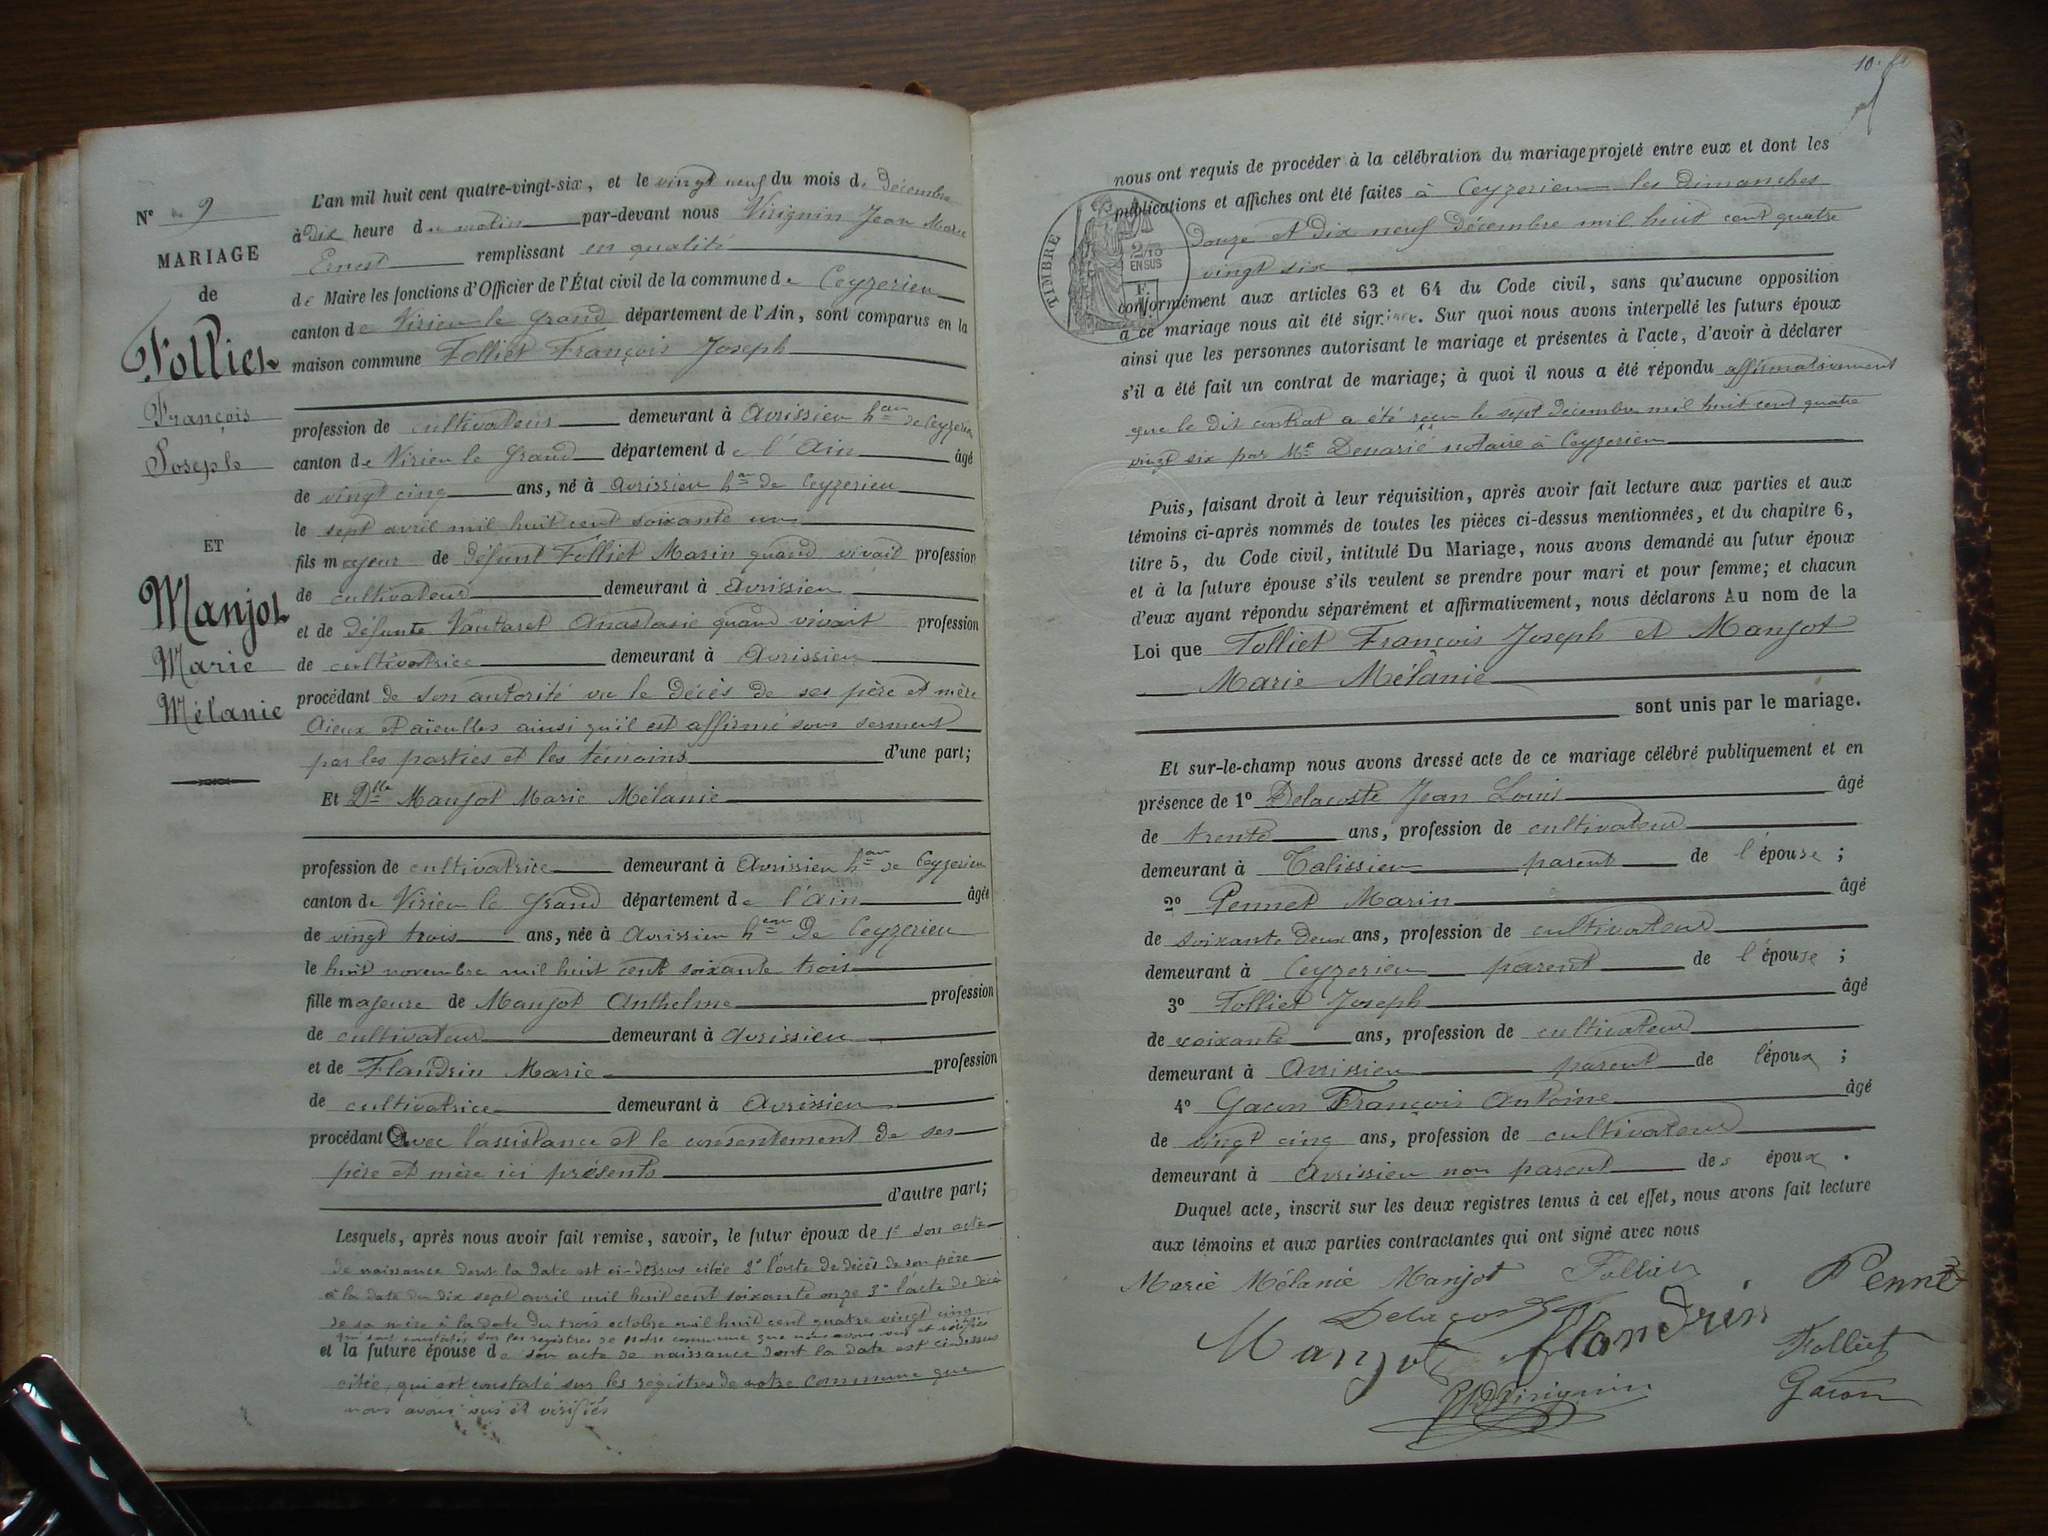 N° 9
MARIAGE
de
Folliet
François
Joseph
ET
Manjot
Marie
Mélanie
L'an mil huit cent quatre-vingt-six, et le vingt neuf du mois de Décembre
à Dix heure du matin par-devant nous Virignin Jean Marie
Ernest remplissant en qualité
de Maire les fonctions d'Officier de l'État civil de la commune de Ceyzerieu
canton de Virieu le Grand département de l'Ain, sont comparus en la
maison commune Folliet François Joseph
profession de cultivateur demeurant à Avrissieu h.au de Ceyzerieu
canton de Virieu le Grand département de l'Ain âgé
de vingt cinq ans, né à Avrissieu h.au de Ceyzerieu
le sept avril mil huit cent soixante un
fils majeur de défunt Folliet Marin quand vivait profession
de cultivateur demeurant à Avrissieu
et de Défunte Vautaret Anastasie quand vivait profession
de cultivatrice demeurant à Avrissieu
procédant de son autorité vu le décès de ses père et mère
Aieux et aieulles ainsi qu'il est affirmé sous serment
par les parties et les témoins d'une part;
Et Dlle Manjot Marie Mélanie
profession de cultivatrice demeurant à Avrissieu h.au de Ceyzerieu
canton de Virieu le Grand département de l'Ain âgée
de vingt trois ans, née à Avrissieu h.au De Ceyzerieu
le huit novembre mil huit cent soixante trois
fille majeure de Manjot Anthelme profession
de cultivateur demeurant à Avrissieu
et de Flandrin Marie profession
de cultivatrice demeurant à Avrissieu
procédant Avec l'assistance et le consentement de ses
père et mère ici présents
d'autre part;
Lesquels, après nous avoir fait remise, savoir, le futur époux de 1° son acte
de naissance dont la date est ci-dessus citée 2° l'acte de décès de son père
à la date du dix sept avril mil huit cent soixante onze 3° l'acte de décès
de sa mère à la date du trois octobre mil huit cent quatre vingt cinq
qui sont constatés sur les registres de notre commune que nous avons vus et vérifiés
et la future épouse de son acte de naissance dont la date est ci dessus
citée, qui est constaté sur les registres de notre commune que
nous avons vus et vérifiés
10.
nous ont requis de procéder à la célébration du mariage projeté entre eux et dont les
publications et affiches ont été faites à Ceyzerieu les dimanches
douze et Dix neuf Décembre mil huit cent quatre
vingt six
TIMBRE
2/10
EN SUS
conformément aux articles 63 et 64 du Code civil, sans qu'aucune opposition
à ce mariage nous ait été signifiée. Sur quoi nous avons interpellé les futurs époux
ainsi que les personnes autorisant le mariage et présentes à l'acte, d'avoir à déclarer
s'il a été fait un contrat de mariage; à quoi il nous a été répondu affirmativement
que le dit contrat a été reçu le sept Décembre mil huit cent quatre
vingt six par Me Denarié notaire à Ceyzerieu
Puis, faisant droit à leur réquisition, après avoir fait lecture aux parties et aux
témoins ci-après nommés de toutes les pièces ci-dessus mentionnées, et du chapitre 6,
titre 5, du Code civil, intitulé Du Mariage, nous avons demandé au futur époux
et à la future épouse s'ils veulent se prendre pour mari et pour femme; et chacun
d'eux ayant répondu séparément et affirmativement, nous déclarons Au nom de la
Loi que Folliet François Joseph et Manjot
Marie Mélanie
sont unis par le mariage.
Et sur-le-champ nous avons dressé acte de ce mariage célébré publiquement et en
présence de 1° Delacoste Jean Louis âgé
de trente ans, profession de cultivateur
demeurant à Talissieu parent de l'épouse;
2° Pennet Marin âgé
de soixante deux ans, profession de cultivateur
demeurant à Ceyzerieu parent de l'épouse;
3° Folliet Joseph âgé
de soixante ans, profession de cultivateur
demeurant à Avrissieu parent de l'époux;
4° Gacon François Antoine âgé
de vingt cinq ans, profession de cultivateur
demeurant à Avrissieu non parent des époux.
Duquel acte, inscrit sur les deux registres tenus à cet effet, nous avons fait lecture
aux témoins et aux parties contractantes qui ont signé avec nous
Marie Mélanie Manjot Folliet Pennet
Delacoste
Manjot flandrin Folliet
Virignin Gacon